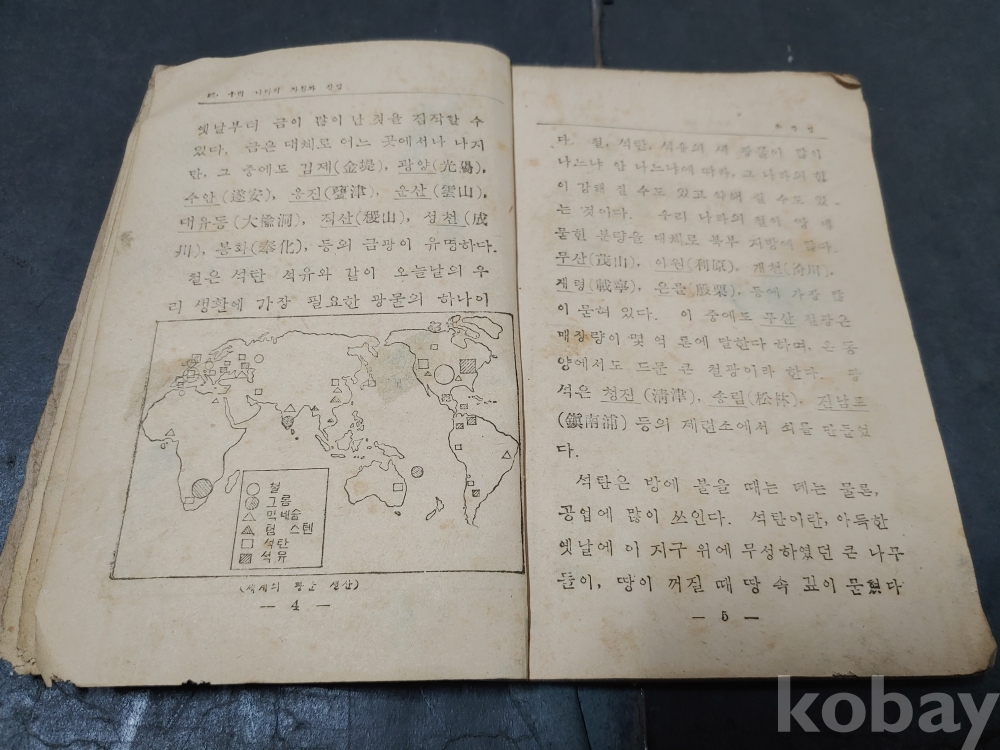 우리 나라의
옛날부터 금이 많이 난 것을 짐작할 수
있다. 금은 대체로 어느 곳에서나 나지
만, 그 중에도 김제(金堤), 광양(光陽),
수안(遂安), 옹진(甕津), 운산(雲山),
대유동(大楡洞), 직산(稷山), 성천(成
川), 봉화(奉化), 등의 금광이 유명하다.
철은 석탄 석유와 같이 오늘날의 우
리 생활에 가장 필요한 광물의 하나이
철
그롬
막네슘
텅스텐
석탄
석유
(세계의 광산 생산)
— 4 —
다. 철, 석탄, 석유의 세 광물이 많이
나느냐 안 나느냐에 따라, 그 나라의 힘
이 강해 질 수도 있고 약해 질 수도 있
는 것이다. 우리 나라의 철이 땅 에
묻힌 분량은 대체로 북부 지방에 많다.
무산(茂山), 이원(利原), 개천(价川),
은율(殷栗), 등에 가장 많
이 묻혀 있다. 이 중에도 무산 철광은
매장량이 몇 억 톤에 달한다 하며, 온 동
양에서도 드문 큰 철광이라 한다. 광
석은 청진(淸津), 송림(松林), 진남포
(鎭南浦) 등의 제련소에서 쇠를 만들었
다.
석탄은 방에 불을 때는 데는 물론,
공업에 많이 쓰인다. 석탄이란, 아득한
옛날에 이 지구 위에 무성하였던 큰 나무
들이, 땅이 꺼질 때 땅 속 깊이 묻혔다
— 5 —
kobay